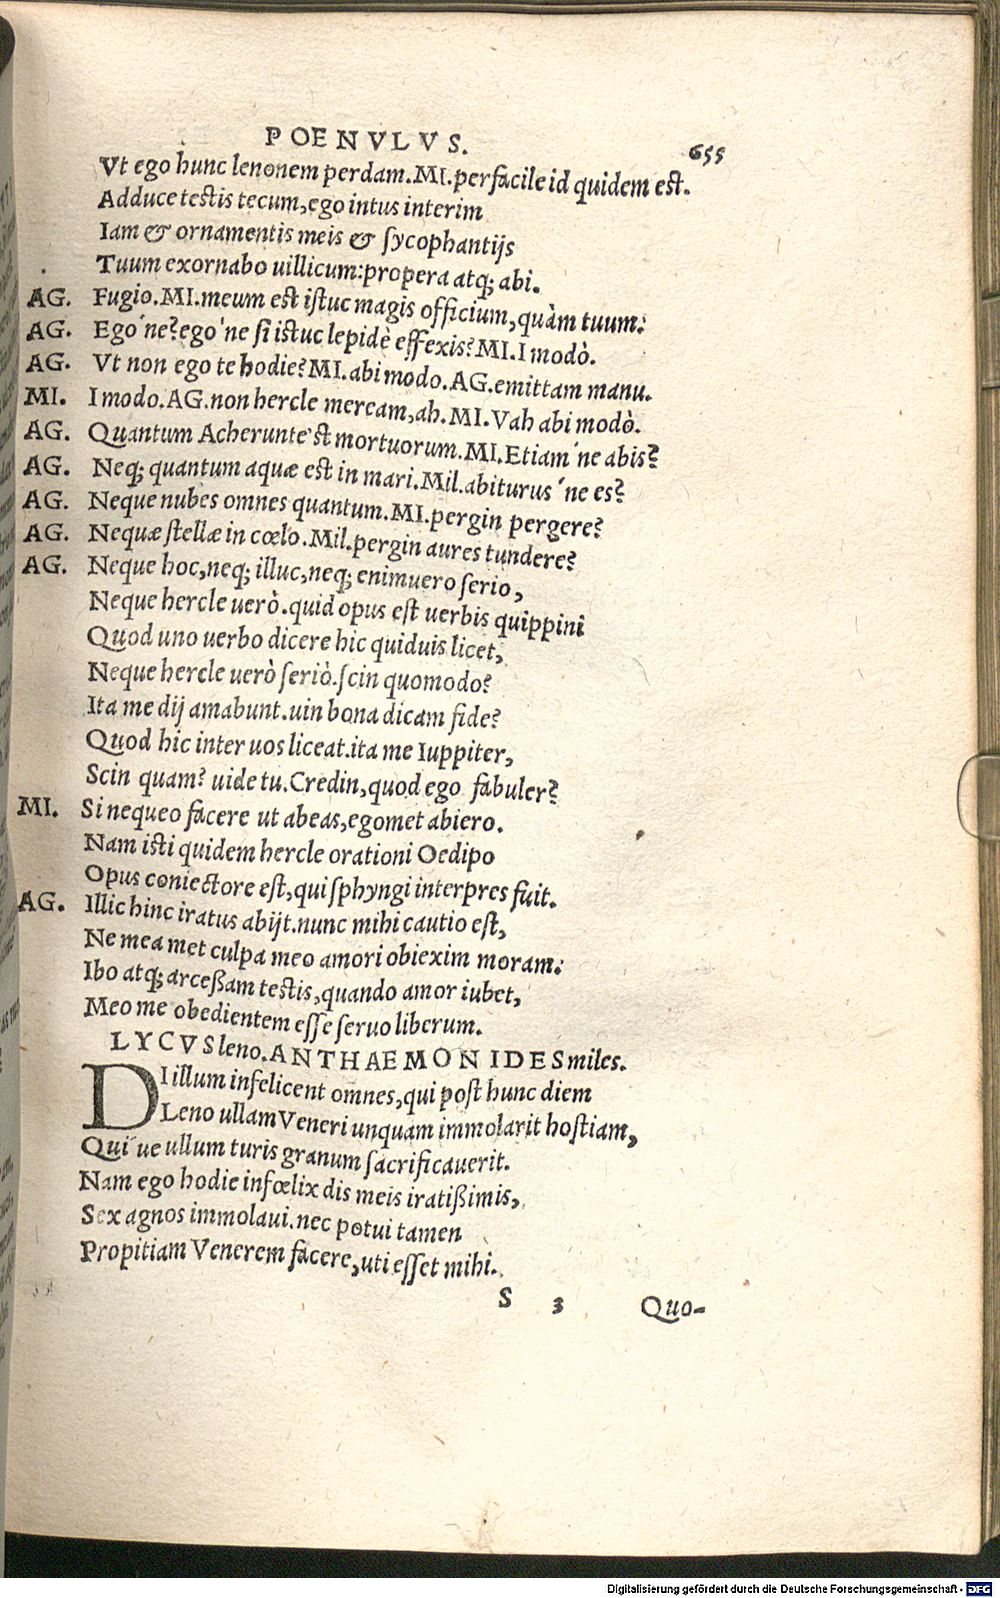 POENVLVS. 655
Vt ego hunc lenonem perdam.MI.perfacile id quidem est.
Adduce testis tecum,ego intus interim
Iam & ornamentis meis & sycophantijs
Tuum exornabo uillicum:propera atq; abi.
AG. Fugio.MI.meum est istuc magis officium,quàm tuum:
AG. Ego ́ne?ego ́ne si istuc lepidè effexis?MI.I modò.
AG. Vt non ego te hodie?MI.abi modo.AG.emittam manu.
MI. I modo.AG.non hercle mercam,ah.MI.Vah abi modò.
AG. Quantum Acherunte ́st mortuorum.MI.Etiam ́ne abis?
AG. Neq; quantum aquæ est in mari.Mil.abiturus ́ne es?
AG. Neque nubes omnes quantum.MI.pergin pergere?
AG. Nequæ stellæ in cœlo.Mil.pergin aures tundere?
AG. Neque hoc,neq; illuc,neq; enimuero serio,
Neque hercle uerò.quid opus est uerbis quippini
Quod uno uerbo dicere hic quiduis licet,
Neque hercle uerò seriò.scin quomodo?
Ita me dij amabunt.uin bona dicam fide?
Quod hic inter uos liceat.ita me Iuppiter,
Scin quam? uide tu.Credin,quod ego fabuler?
MI. Si nequeo facere ut abeas,egomet abiero.
Nam isti quidem hercle orationi Oedipo
Opus coniectore est,qui sphyngi interpres fuit.
AG. Illic hinc iratus abijt.nunc mihi cautio est,
Ne mea met culpa meo amori obiexim moram:
Ibo atq; arceßam testis,quando amor iubet,
Meo me obedientem esse seruo liberum.
LYCVS leno.ANTHAEMONIDES miles.
DIillum infelicent omnes,qui post hunc diem
Leno ullam Veneri unquam immolarit hostiam,
Qui ́ue ullum turis granum sacrificauerit.
Nam ego hodie infœlix dis meis iratißimis,
Sex agnos immolaui.nec potui tamen
Propitiam Venerem facere,uti esset mihi.
S 3 Quo-
Digitalisierung gefördert durch die Deutsche Forschungsgemeinschaft - DFG